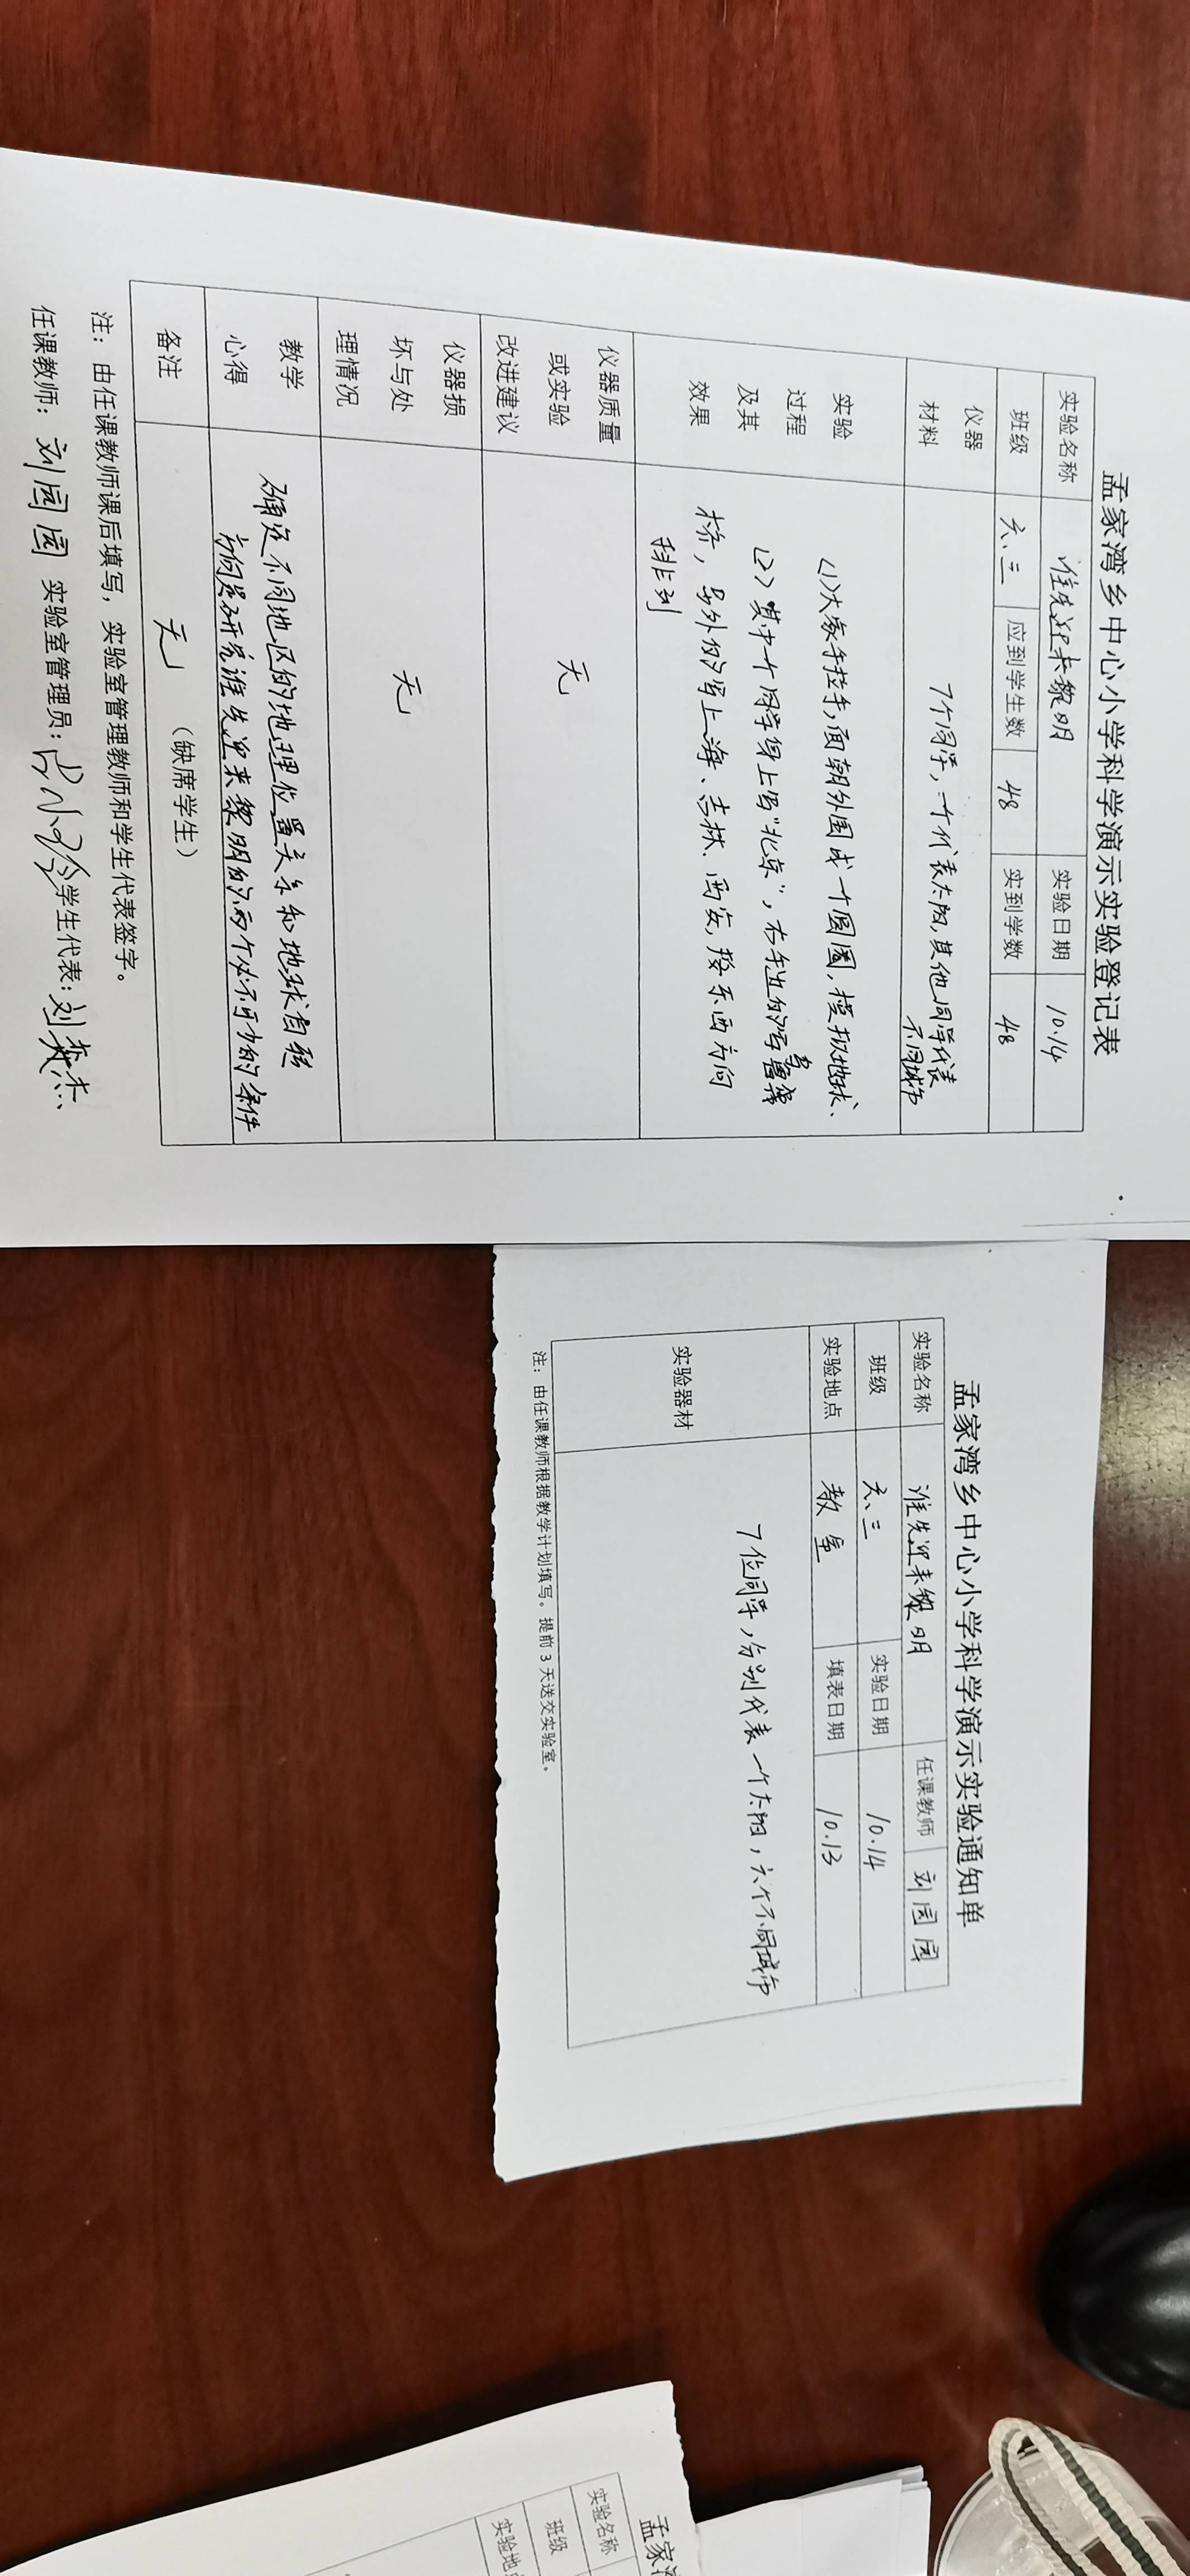 孟家湾乡中心小学科学演示实验登记表
实验名称 谁先迎来黎明 实验日期 10.14
班级 六、三 应到学生数 48 实到学数 48
仪器材料 7个同学，一个代表太阳，其他同学代表
不同城市
实验过程及其效果 (1)大家手拉手，面朝外围成一个圆圈，模拟地球、
(2)其中一个同学身上写"北京"，右手边的写
桥，另外的写上海、吉林、西安，按东西方向
排列
仪器质量或实验改进建议 无
仪器损坏与处理情况 无
教学心得 确定不同地区的地理位置关系和地球自转
方向是研究谁先迎来黎明的两个必不可少的条件
备注 无 （缺席学生）
注：由任课教师课后填写，实验室管理教师和学生代表签字。
任课教师：刘园园 实验室管理员： 学生代表：刘
孟家湾乡中心小学科学演示实验通知单
实验名称 谁先迎来黎明 任课教师 刘园园
班级 六、三 实验日期 10.14
实验地点 教室 填表日期 10.13
实验器材 7位同学，分别代表一个太阳，六个不同城市
注：由任课教师根据教学计划填写。提前3天送交实验室。
孟家湾
实验名称
班级
实验地